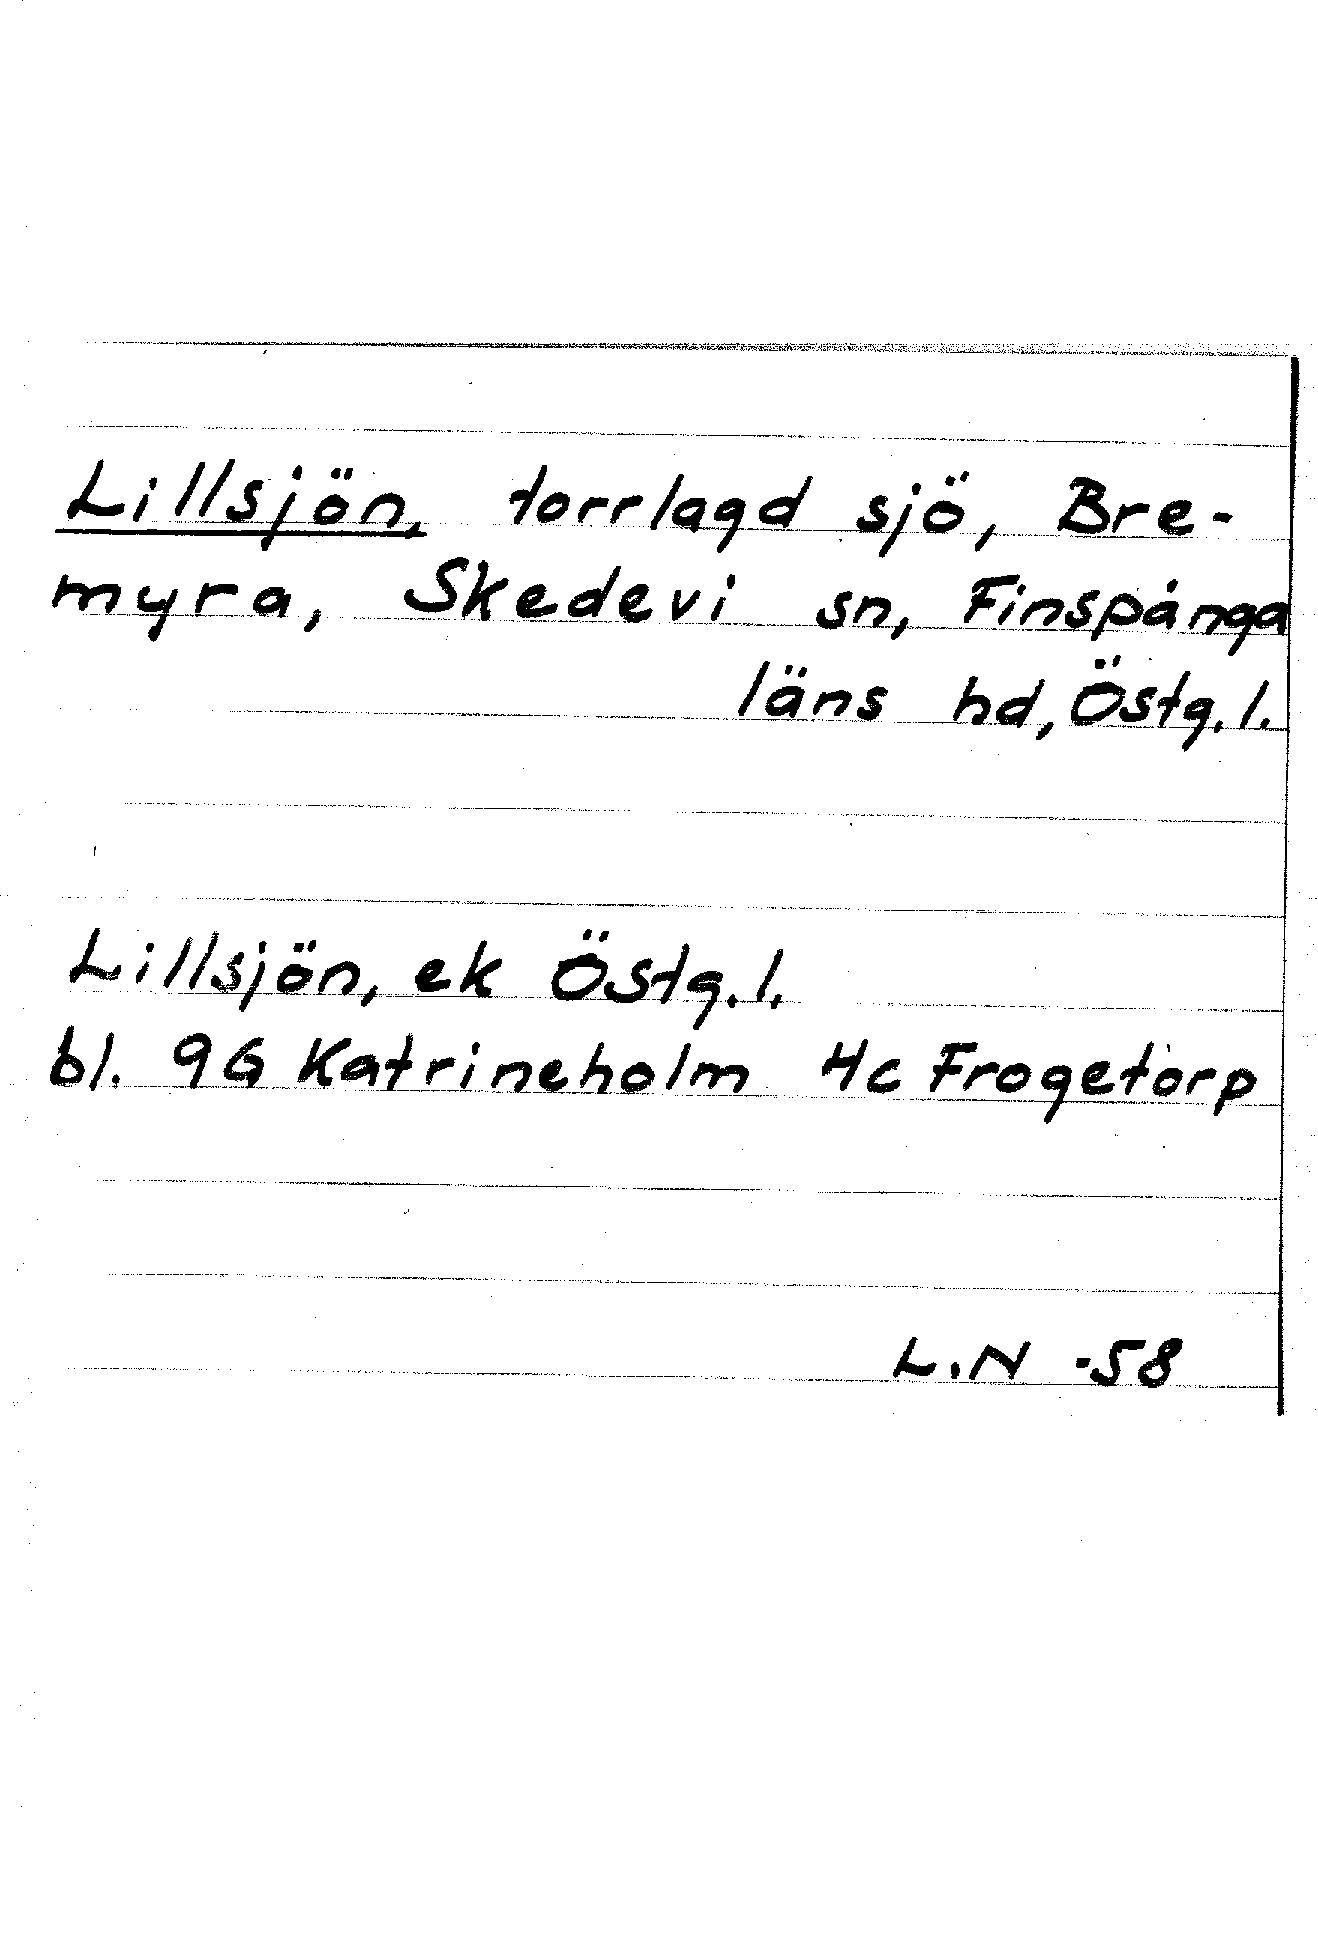 Lillsjön, torrlagd sjö, Bre-
myra, Skedevi sn, Finspånga
läns hd, Östg.l.
Lillsjön, ek Östg.l.
bl. 9G Katrineholm 4c Frogetorp
L.N -58